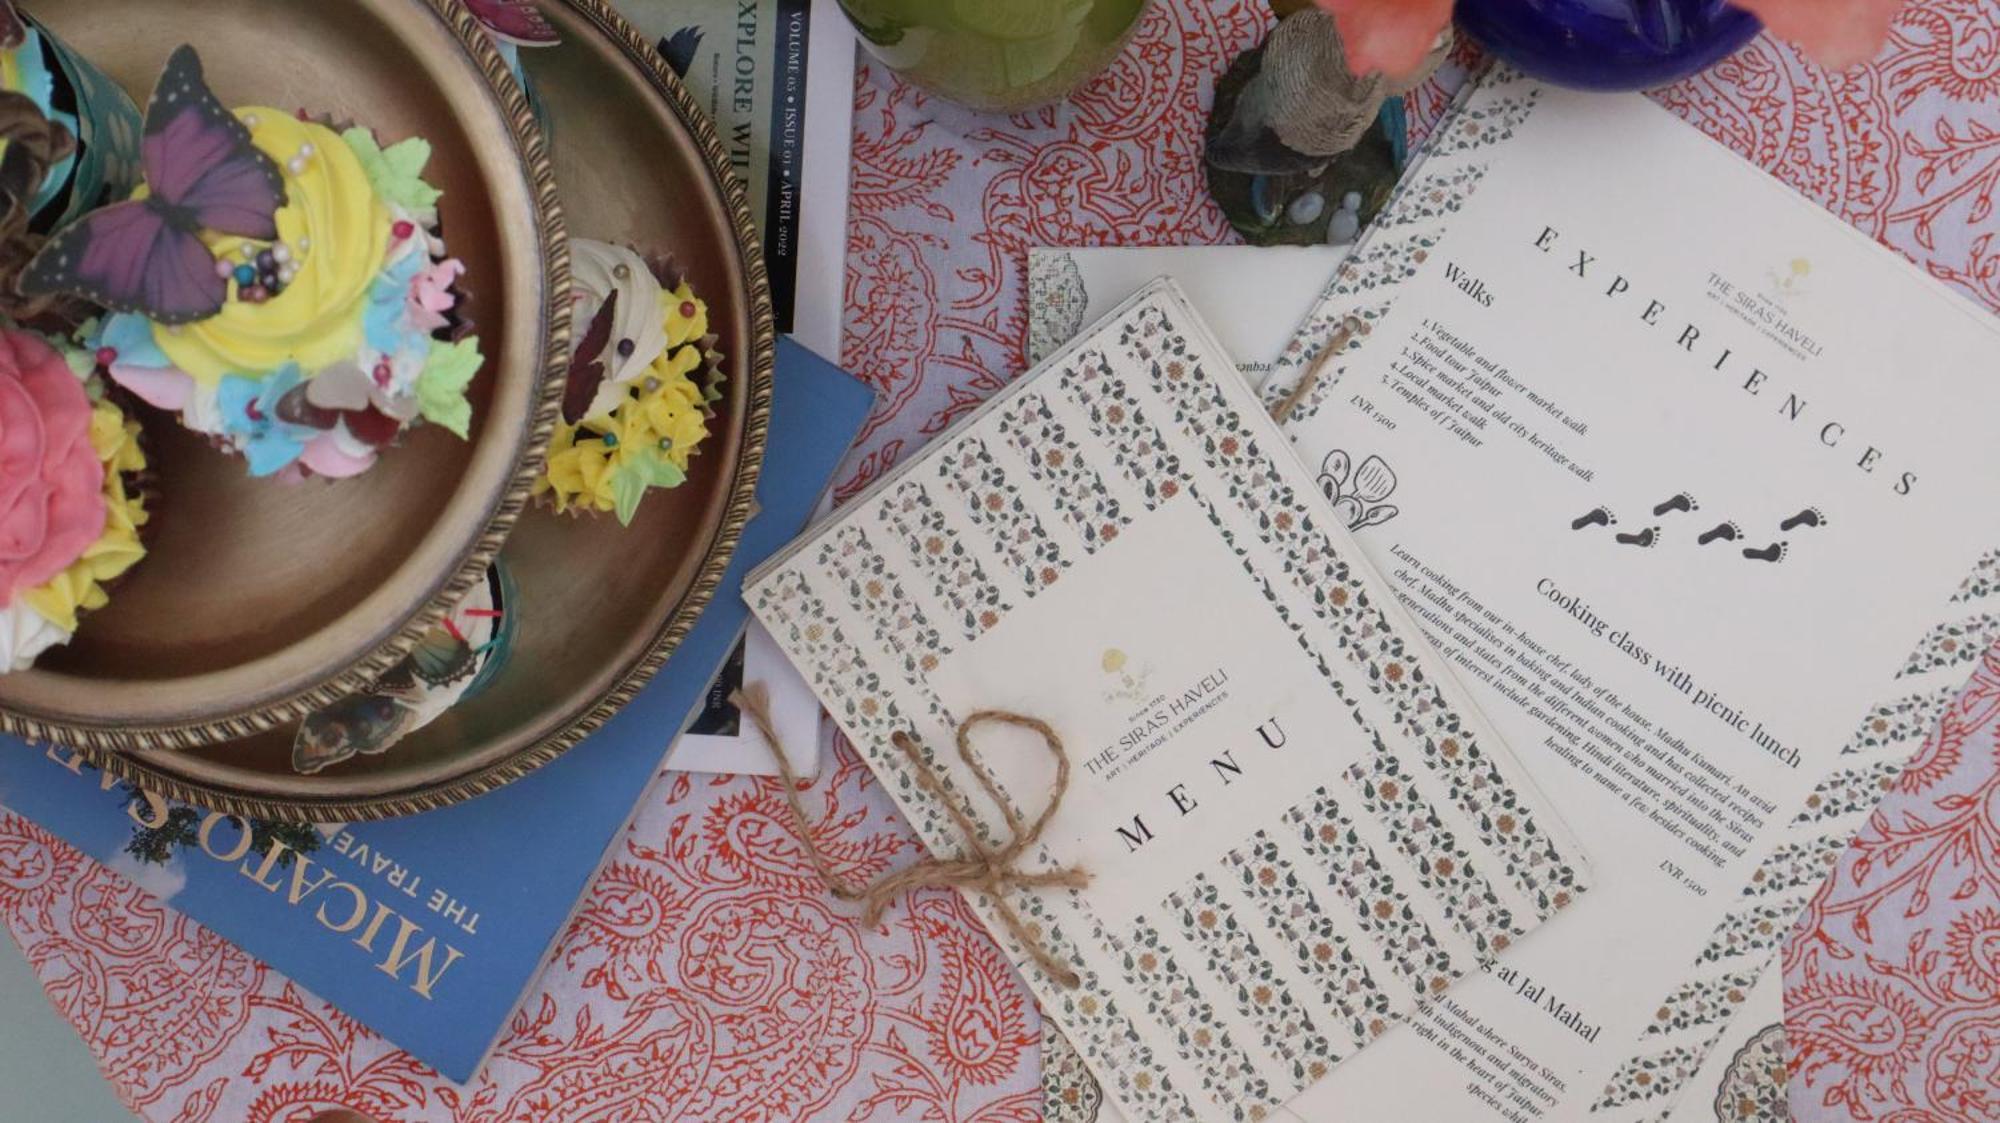 EXPLORE WIL
VOLUME 05 • ISSUE 01 • APRIL 2022
MICATO S
THE TRAVEL
Since 1730
THE SIRAS HAVELI
ART | HERITAGE | EXPERIENCES
MENU
Since 1730
THE SIRAS HAVELI
ART | HERITAGE | EXPERIENCES
EXPERIENCES
Walks
1.Vegetable and flower market walk
2.Food tour Jaipur
3.Spice market and old city heritage walk
4.Local market walk
5.Temples of f Jaipur
INR 1500
Cooking class with picnic lunch
Learn cooking from our in-house chef, lady of the house, Madhu Kumari. An avid
chef, Madhu specialises in baking and Indian cooking and has collected recipes
generations and states from the different women who married into the Siras
areas of interest include gardening, Hindi literature, spirituality, and
healing to name a few, besides cooking.
INR 1500
g at Jal Mahal
Mahal where Surya Siras,
indigenous and migratory
right in the heart of Jaipur.
species whil